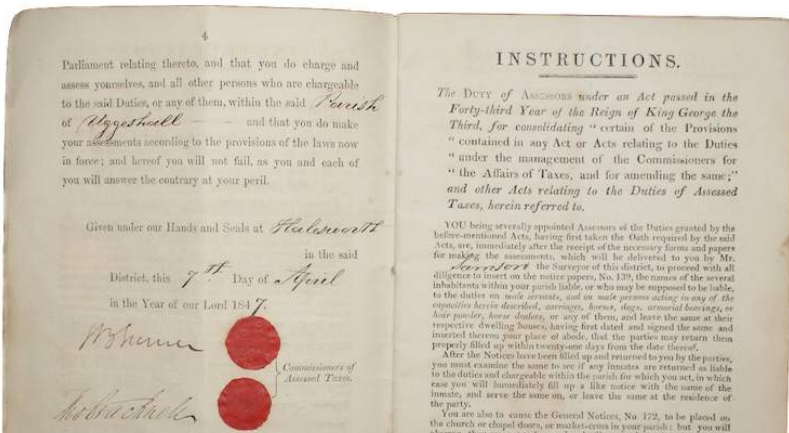 4
Parliament relating thereto, and that you do charge and
assess yourselves, and all other persons who are chargeable
to the said Duties, or any of them, within the said Parish
of Uggeshall and that you do make
your assessments according to the provisions of the laws now
in force; and hereof you will not fail, as you and each of
you will answer the contrary at your peril.
Given under our Hands and Seals at Halesworth
in the said
District, this 7th. Day of April
in the Year of our Lord 1847.
Commissioners of
Assessed Taxes.
INSTRUCTIONS.
The DUTY of ASSESSORS under an Act passed in the
Forty-third Year of the Reign of King George the
Third, for consolidating " certain of the Provisions
" contained in any Act or Acts relating to the Duties
" under the management of the Commissioners for
" the Affairs of Taxes, and for amending the same;"
and other Acts relating to the Duties of Assessed
Taxes, herein referred to.
YOU being severally appointed Assessors of the Duties granted by the
before-mentioned Acts, having first taken the Oath required by the said
Acts, are, immediately after the receipt of the necessary forms and papers
for making the assessments, which will be delivered to you by Mr.
the Surveyor of this district, to proceed with all
diligence to insert on the notice papers, No. 139, the names of the several
inhabitants within your parish liable, or who may be supposed to be liable,
to the duties on male servants, and on male persons acting in any of the
capacities herein described, carriages, horses, dogs, armorial bearings, or
hair powder, horse dealers, or any of them, and leave the same at their
respective dwelling houses, having first dated and signed the same and
inserted thereon your place of abode, that the parties may return them
properly filled up within twenty-one days from the date thereof.
After the Notices have been filled up and returned to you by the parties,
you must examine the same to see if any inmates are returned as liable
to the duties and chargeable within the parish for which you act, in which
case you will immediately fill up a like notice with the name of the
inmate, and serve the same on, or leave the same at the residence of
the party.
You are also to cause the General Notices, No 172, to be placed on
the church or chapel doors, or market-cross in your parish: but you will